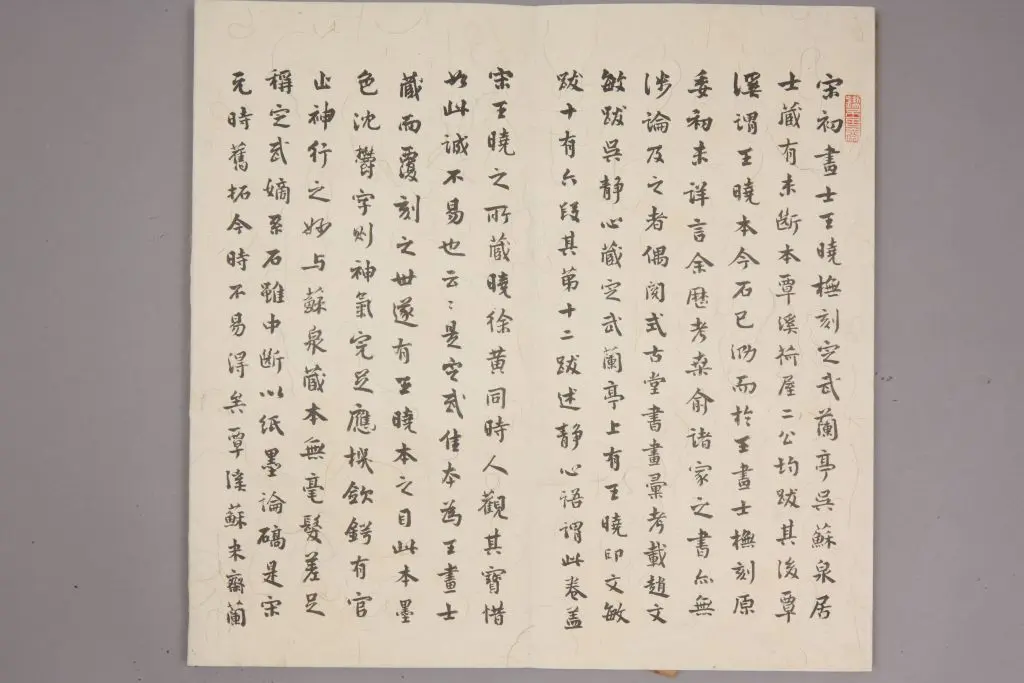 宋初畫士王曉橅刻定武蘭亭吳蘇泉居
士藏有未斷本覃溪荷屋二公均跋其後覃
溪謂王曉本今石已泐而於王畫士橅刻原
委初未詳言余歷考桑俞諸家之書亦無
涉論及之者偶閱式古堂書畫彙考載趙文
敏跋吳靜心藏定武蘭亭上有王曉印文敏
跋十有六段其第十二跋述靜心語謂此卷蓋
宋王曉之所藏曉徐黃同時人觀其寶惜
如此誠不易也云〻是定武佳本為王畫士
藏而覆刻之世遂有王曉本之目此本墨
色沈鬱字則神氣完足應楑欽鍔有官
止神行之妙與蘇泉藏本無毫髮差足
稱定武嫡系石雖中斷以紙墨論礄是宋
元時舊拓今時不易得矣覃溪蘇米齋蘭